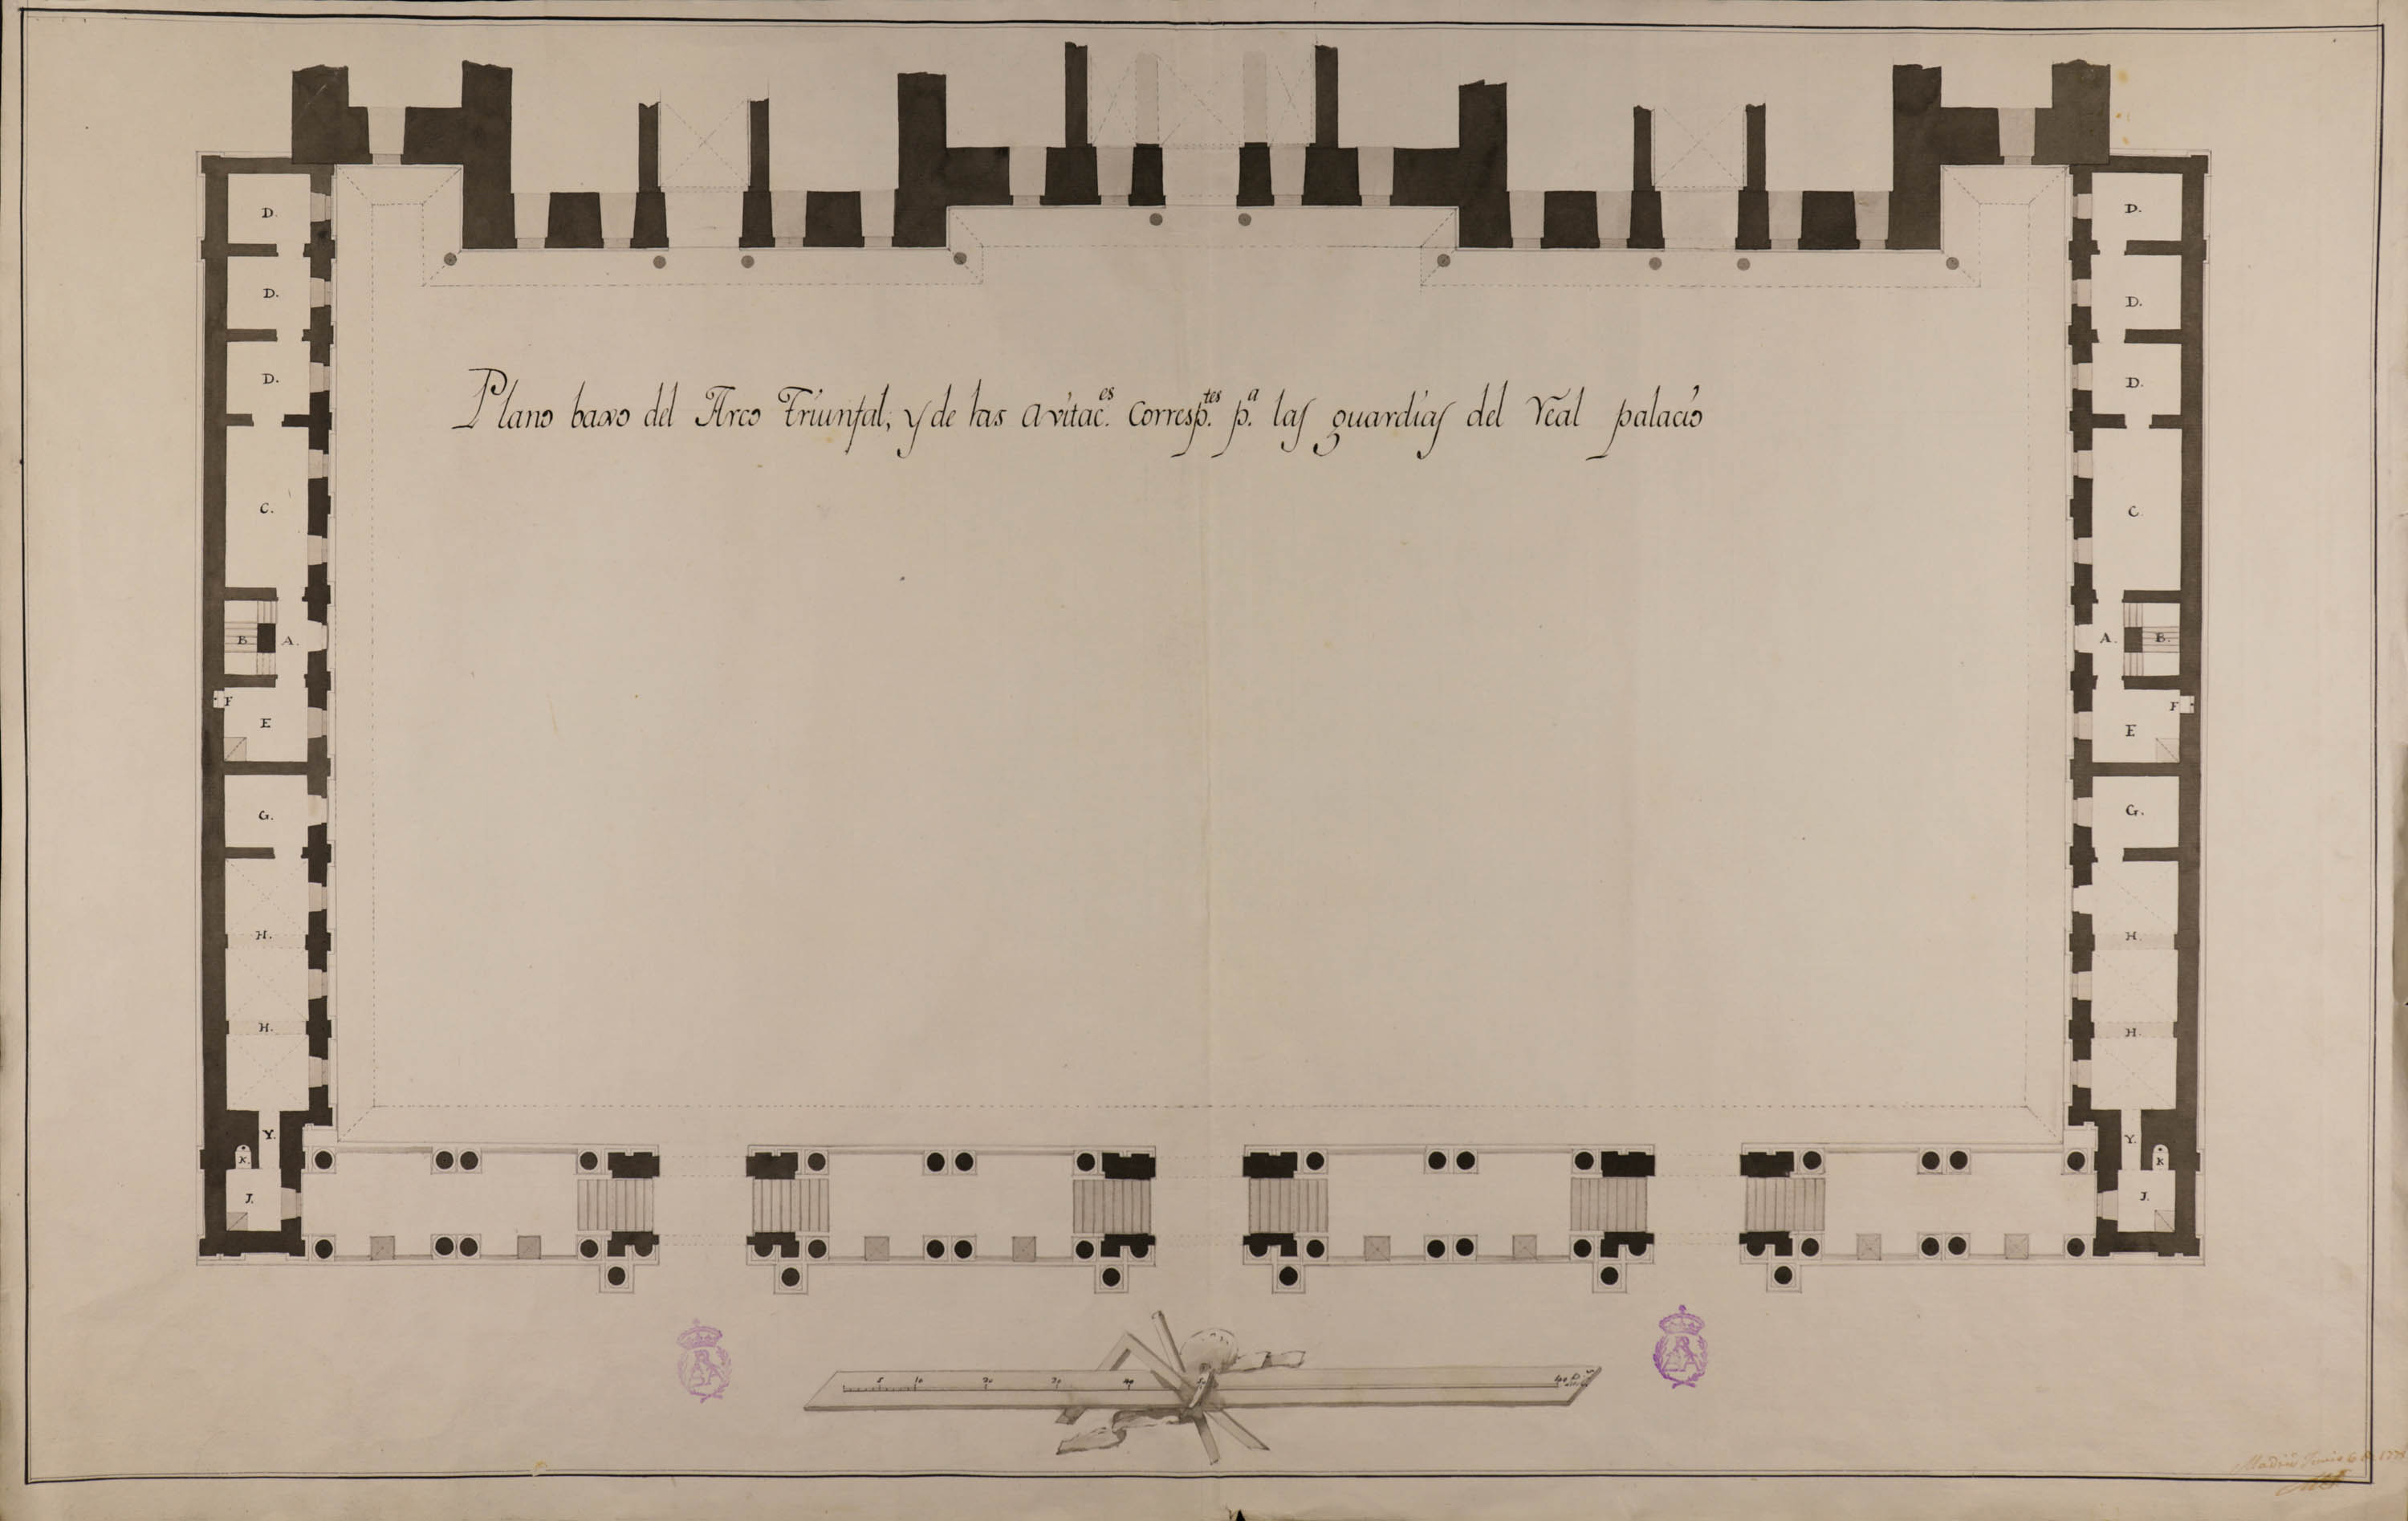 D. D.
D. D.
D. D.
Plano baxo del Arco Triunfal, y de las avitac.es corresp.tes p.a las guardias del Real palacio
C. C.
B A. A. B.
F F
E E
G. G.
H. H.
H. H.
Y. Y.
K. K
J. J.
5 10 20 30 40
Madrid Junio 6 de